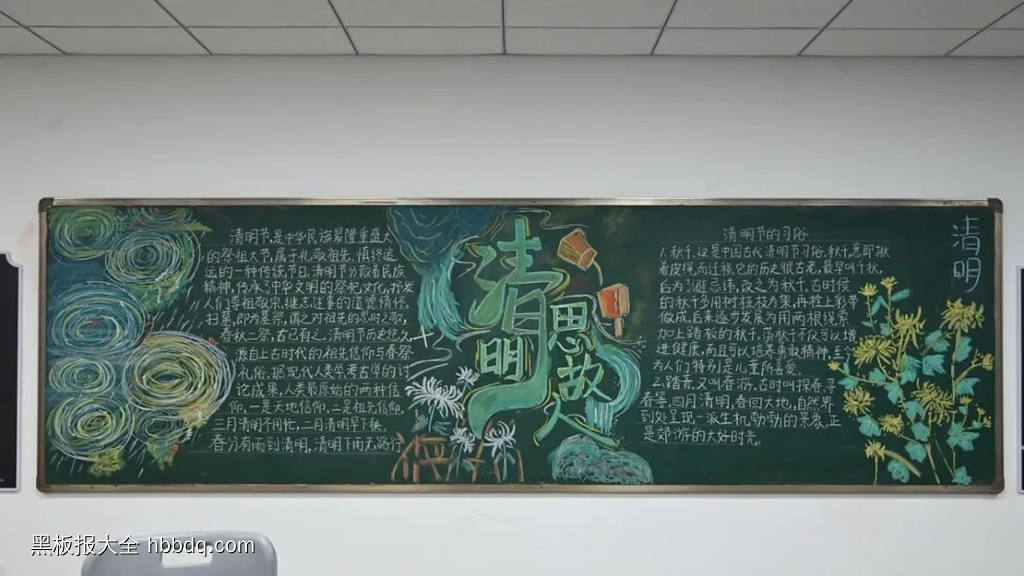 清明节是中华民族最隆重盛大
的祭祖大节,属于礼敬祖先、慎终追
远的一种传统节日,清明节凝聚着民族
精神,传承了中华文明的祭祀文化,抒发
人们尊祖敬宗、继志述事的道德情怀。
扫墓,即为墓祭,谓之对祖先的思时之敬,
春秋二祭,古已有之。清明节历史悠久,
源自上古时代的祖先信仰与春祭
礼俗,据现代人类学考古学的讨
论成果,人类最原始的两种信
仰,一是天地信仰,二是祖先信仰。
三月清明不用忙,二月清明早下秧,
春分有雨到清明,清明下雨无路行
清明
思故人
清明节的习俗
1.秋千,这是中国古代清明节习俗,秋千,意即揪
着皮绳而迁移,它的历史很古老,最早叫千秋,
后为了避忌讳,改之为秋千,古时候
的秋千多用树桠枝为架,再栓上彩带
做成,后来逐步发展为用两根绳索
加上踏板的秋千,荡秋千不仅可以增
进健康,而且可以培养勇敢精神,至今
为人们特别是儿童所喜爱。
2.踏青,又叫春游,古时叫探春、寻
春等,四月清明,春回大地,自然界
到处呈现一派生机勃勃的景象,正
是郊游的大好时光。
清明
黑板报大全 hbbdq.com